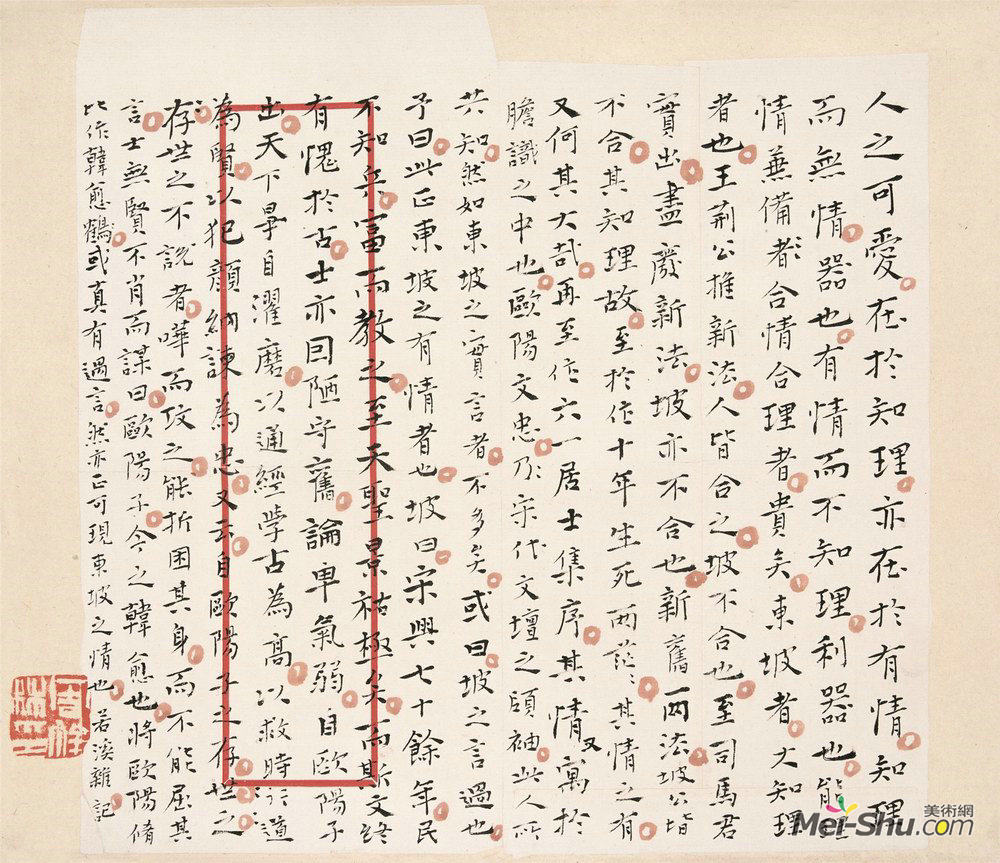 人之可愛在於知理亦在於有情知理
而無情器也有情而不知理利器也能
情兼備者合情合理者貴矣東坡者大知理
者也王荊公推新法人皆合之坡不合也至司馬君
實出盡廢新法坡亦不合也新舊兩法坡公皆
不合其知理故至於作十年生死兩茫茫其情之有
又何其大哉再至作六一居士集序其情又寓於
膽識之中也歐陽文忠乃宋代文壇之頤袖此人所
共知然如東坡之實言者不多矣或曰坡之言過也
予曰此正東坡之有情者也坡曰宋興七十餘年民
不知兵富而教之至天聖景祐極矣而斯文終
有愧於古士亦因陋守舊論卑氣弱自歐陽子
出天下爭自濯磨以通經學古為高以救時行道
為賢以犯顏納諫為忠又云自歐陽子之存世之
存世之不說者嘩而攻之能折困其身而不能屈其
言士無賢不肖而謀曰歐陽子今之韓愈也將歐陽脩
比作韓愈鶴或真有過言然亦正可現東坡之情也若溪雜記
Mei-Shu.com美術網